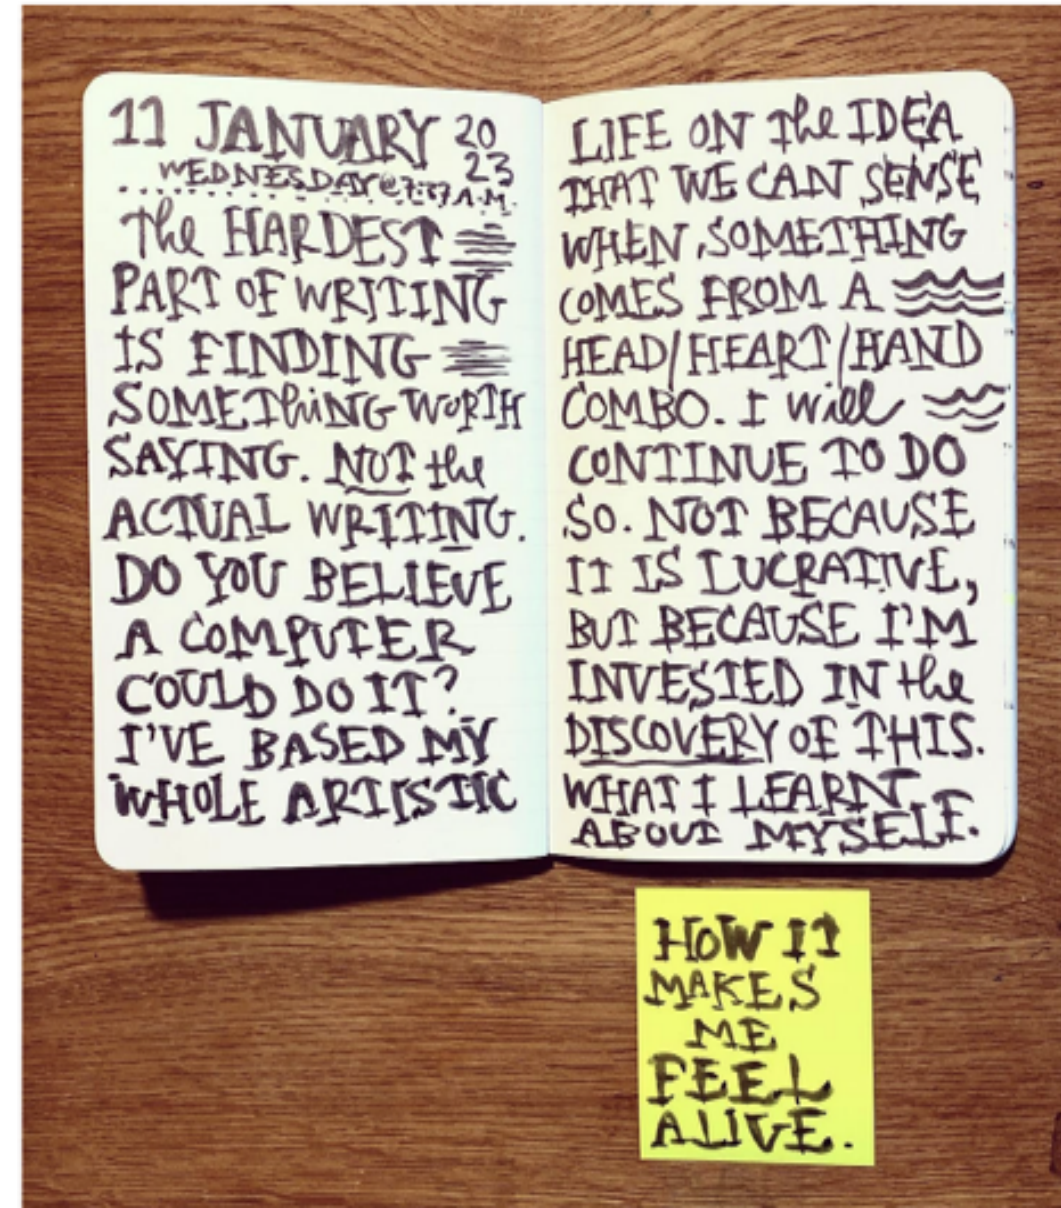 11 JANUARY 20
23
WEDNESDAY @ 7:37 A.M.
The HARDEST
PART OF WRITING
IS FINDING
SOMEThiNG WORTH
SAYING. NOT the
ACTUAL WRITING.
DO YOU BELIEVE
A COMPUTER
COULD DO IT?
I'VE BASED MY
WHOLE ARTISTIC
LIFE ON The IDEA
THAT WE CAN SENSE
WHEN SOMETHING
COMES FROM A
HEAD/HEART/HAND
COMBO. I will
CONTINUE TO DO
SO. NOT BECAUSE
IT IS LUCRATIVE,
BUT BECAUSE I'M
INVESTED IN the
DISCOVERY OF THIS.
WHAT I LEARN
ABOUT MYSELF.
HOW IT
MAKES
ME
FEEL
ALIVE.